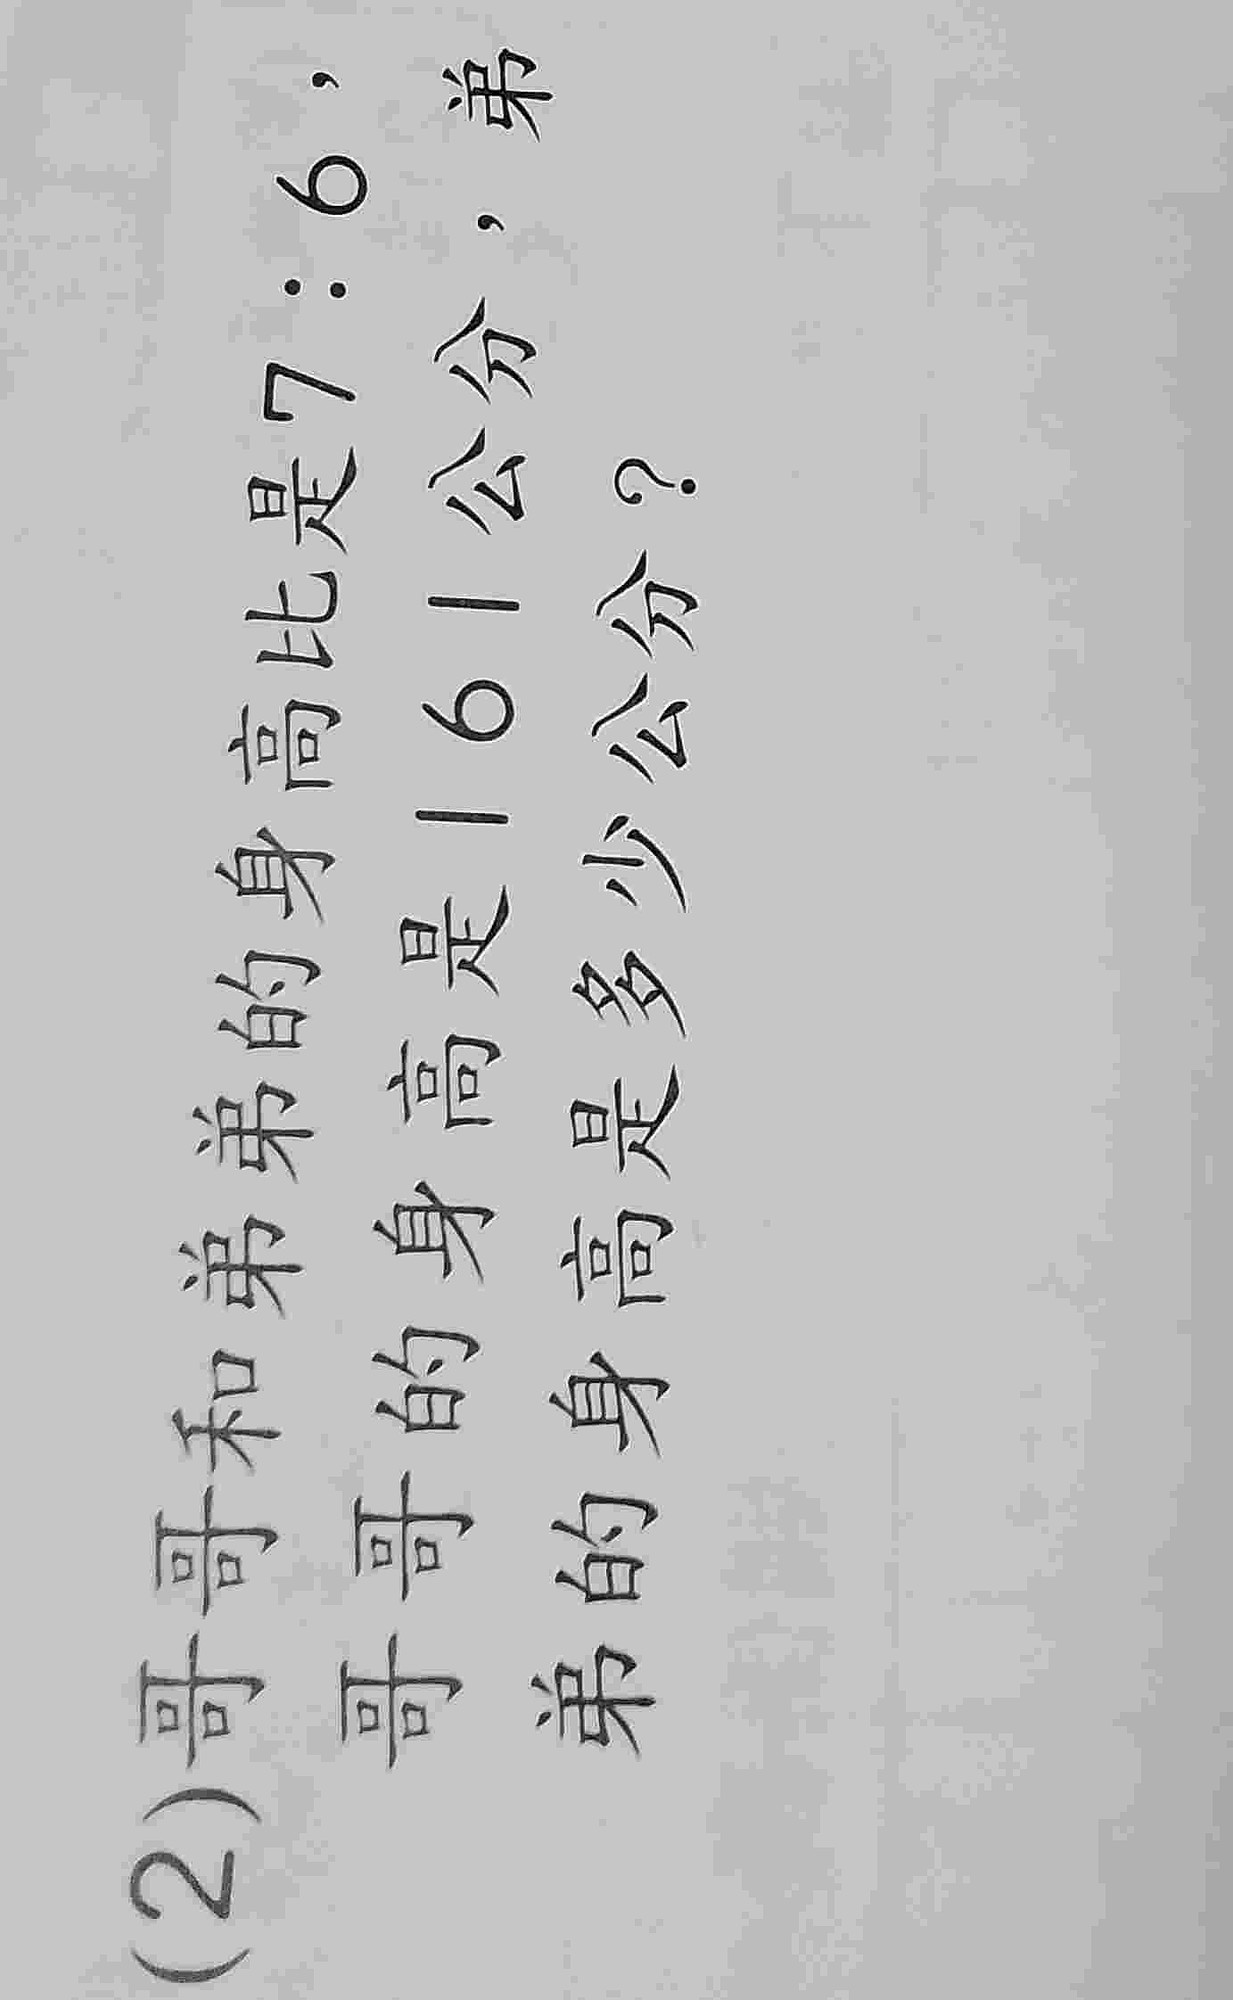 (2)哥哥和弟弟的身高比是7：6，
哥哥的身高是161公分，弟
弟的身高是多少公分？